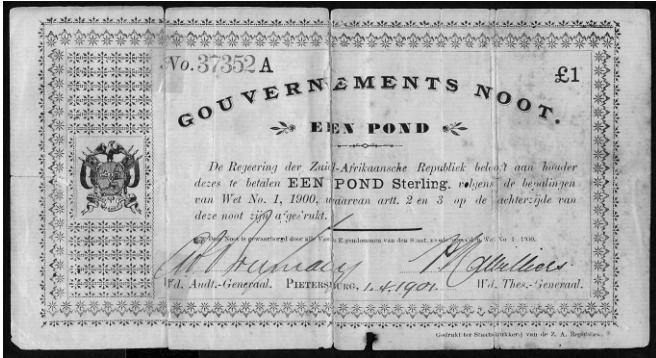 No. 37352 A
£1
GOUVERNEMENTS NOOT.
EEN POND
De Regeering der Zuid-Afrikaansche Republiek belooft aan houder
dezes te betalen EEN POND Sterling, volgens de bepalingen
van Wet No. 1, 1900, waarvan artt. 2 en 3 op de achterzijde van
deze noot zijn afgedrukt.
Deze Noot is gewaarborgd door alle Vaste Eigendommen van den Staat, Wet No. 1 1900.
Wd. Audt.-Generaal. PIETERSBURG, 1.4.1901. Wd. Thes.-Generaal.
Gedrukt ter Staatsdrukkerij van de Z. A. Republiek.